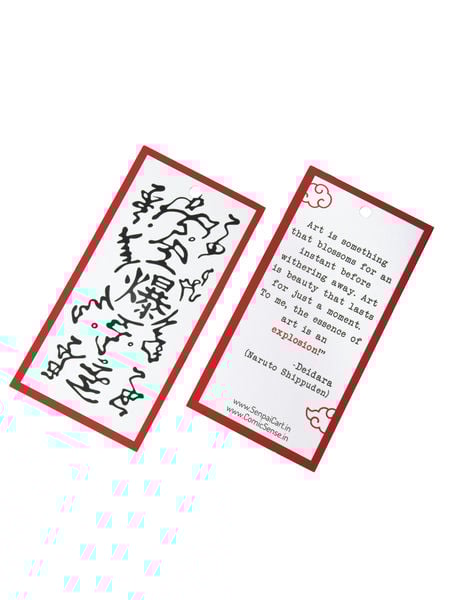 爆
Art is something
that blossoms for an
instant before
withering away. Art
is beauty that lasts
for just a moment.
To me, the essence of
art is an
explosion!"
-Deidara
(Naruto Shippuden)
www.SenpaiCart.in
www.ComicSense.in